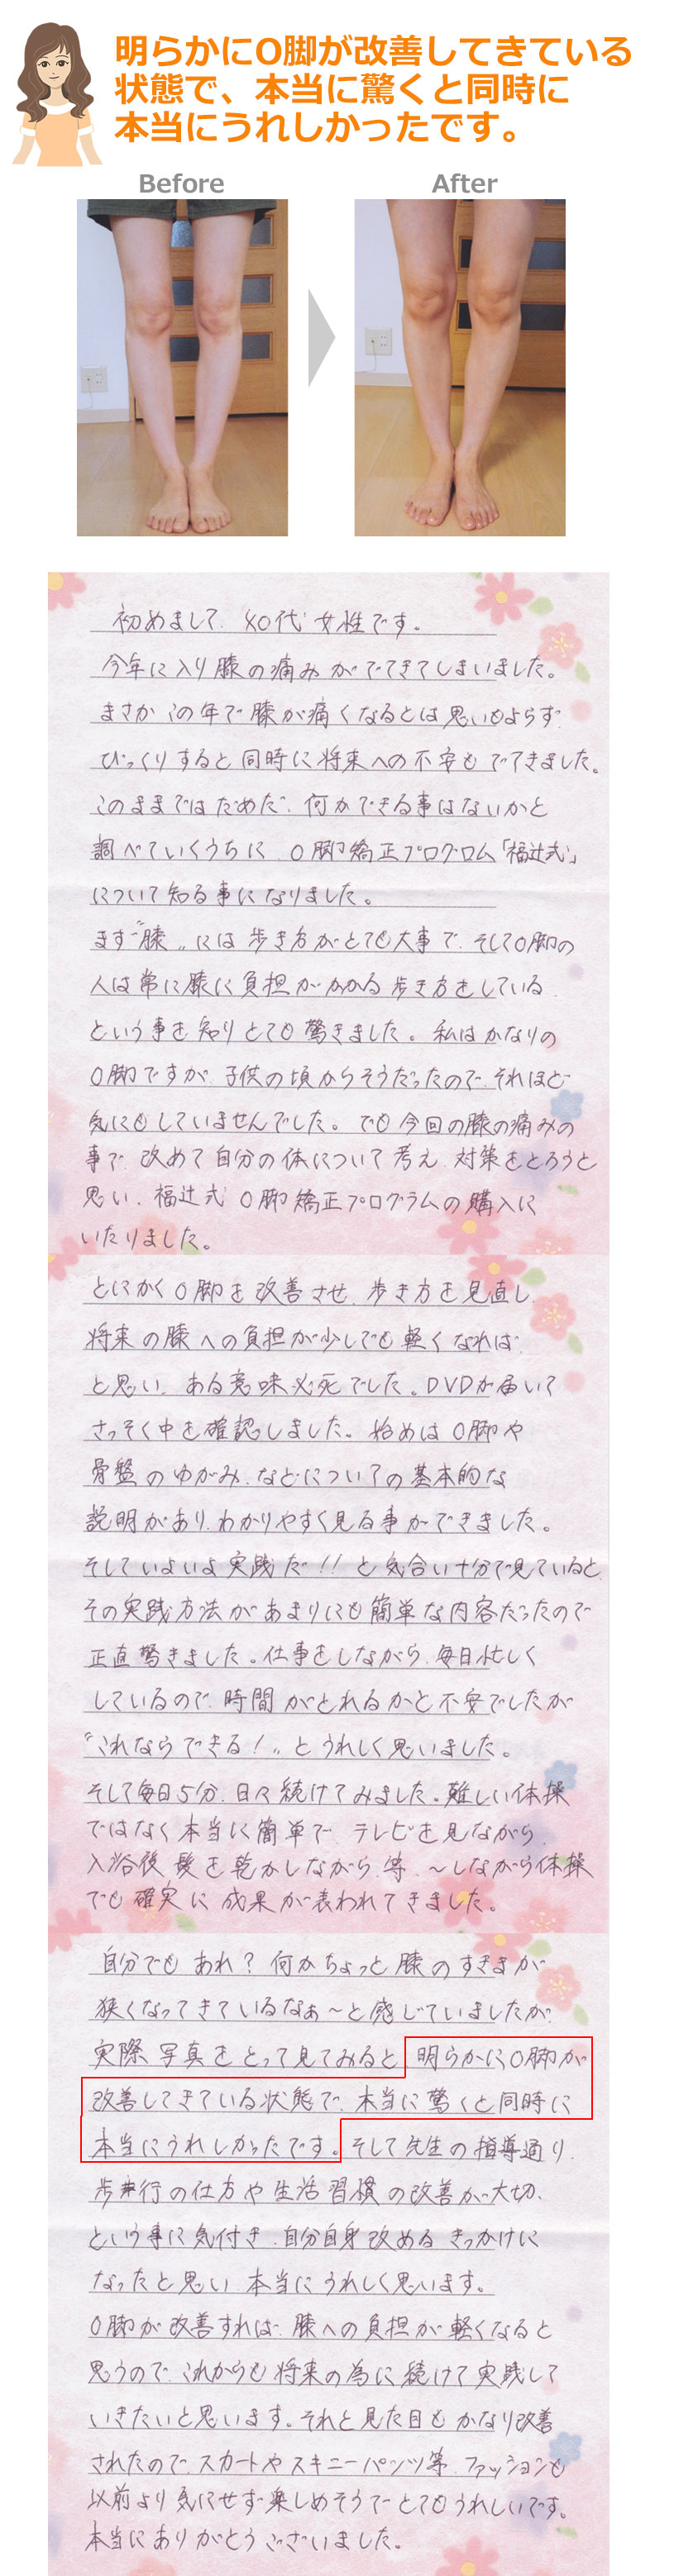 明らかにO脚が改善してきている
状態で、本当に驚くと同時に
本当にうれしかったです。
Before
After
初めまして、40代女性です。
今年に入り膝の痛みがでてきてしまいました。
まさかこの年で膝が痛くなるとは思いもよらず、
びっくりすると同時に将来への不安もでてきました。
このままではだめだ、何かできる事はないかと
調べていくうちに、O脚矯正プログラム「福辻式」
について知る事になりました。
まず“膝〟には歩き方がとても大事で、そしてO脚の
人は常に膝に負担がかかる歩き方をしている、
という事を知りとても驚きました。私はかなりの
O脚ですが、子供の頃からそうだったので、それほど
気にもしていませんでした。でも今回の膝の痛みの
事で、改めて自分の体について考え、対策をとろうと
思い、福辻式O脚矯正プログラムの購入に
いたりました。
とにかくO脚を改善させ、歩き方を見直し、
将来の膝への負担が少しでも軽くなれば、
と思い、ある意味必死でした。DVDが届いて
さっそく中を確認しました。始めはO脚や
骨盤のゆがみ、などについての基本的な
説明があり、わかりやすく見る事ができました。
そしていよいよ実践だ!!と気合い十分で見ていると、
その実践方法があまりにも簡単な内容だったので
正直驚きました。仕事をしながら、毎日忙しく
しているので、時間がとれるかと不安でしたが
“これならできる!〟とうれしく思いました。
そして毎日5分、日々続けてみました。難しい体操
ではなく本当に簡単で、テレビを見ながら、
入浴後髪を乾かしながら、等、~しながら体操
でも確実に成果が表われてきました。
自分でもあれ?何かちょっと膝のすきまが
狭くなってきているなぁ~と感じていましたが、
実際、写真をとって見てみると、明らかにO脚が
改善してきている状態で、本当に驚くと同時に
本当にうれしかったです。そして先生の指導通り、
歩行の仕方や生活習慣の改善が大切、
という事に気付き、自分自身改めるきっかけに
なったと思い、本当にうれしく思います。
O脚が改善すれば、膝への負担が軽くなると
思うので、これからも将来の為に続けて実践して
いきたいと思います。それと見た目もかなり改善
されたので、スカートやスキニーパンツ等、ファッションも
以前より気にせず楽しめそうでとてもうれしいです。
本当にありがとうございました。